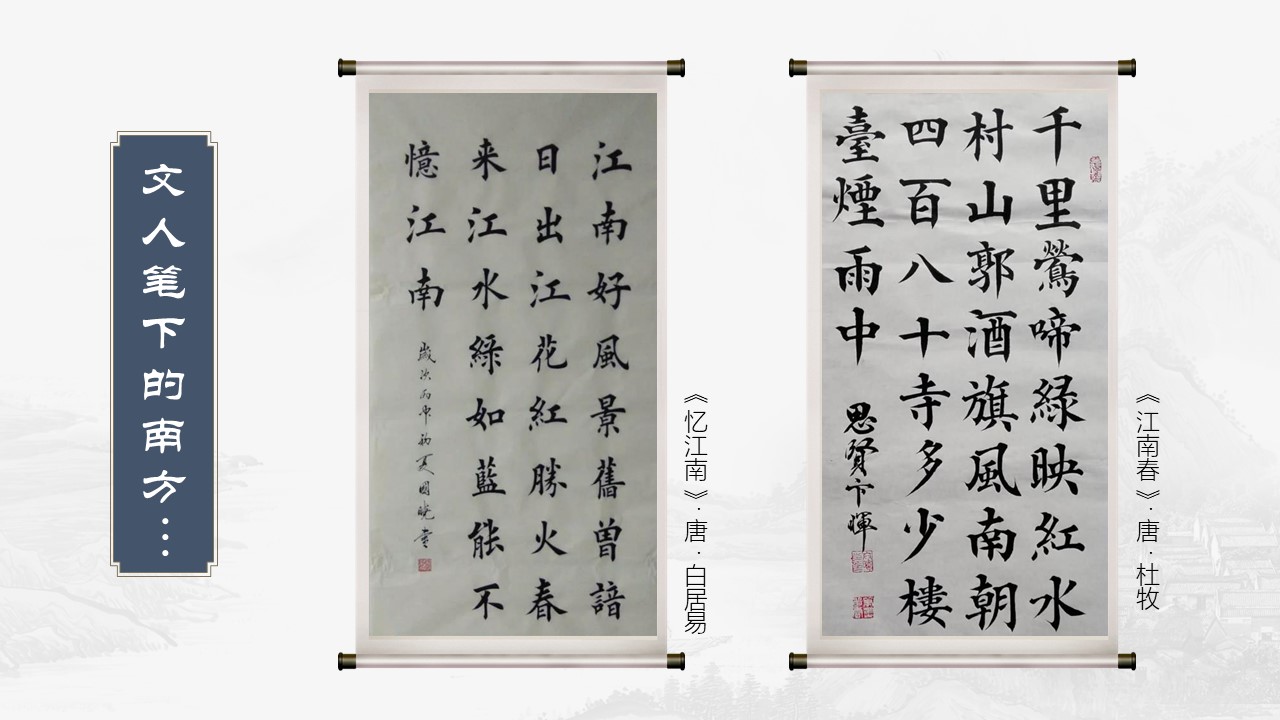 文人笔下的南方…
江南好風景舊曾諳
日出江花紅勝火春
来江水緑如藍能不
憶江南
歲次丙申初夏國曉書
《忆江南》·唐·白居易
千里鶯啼緑映紅水
村山郭酒旗風南朝
四百八十寺多少樓
臺煙雨中
思賢卞暉
《江南春》·唐·杜牧